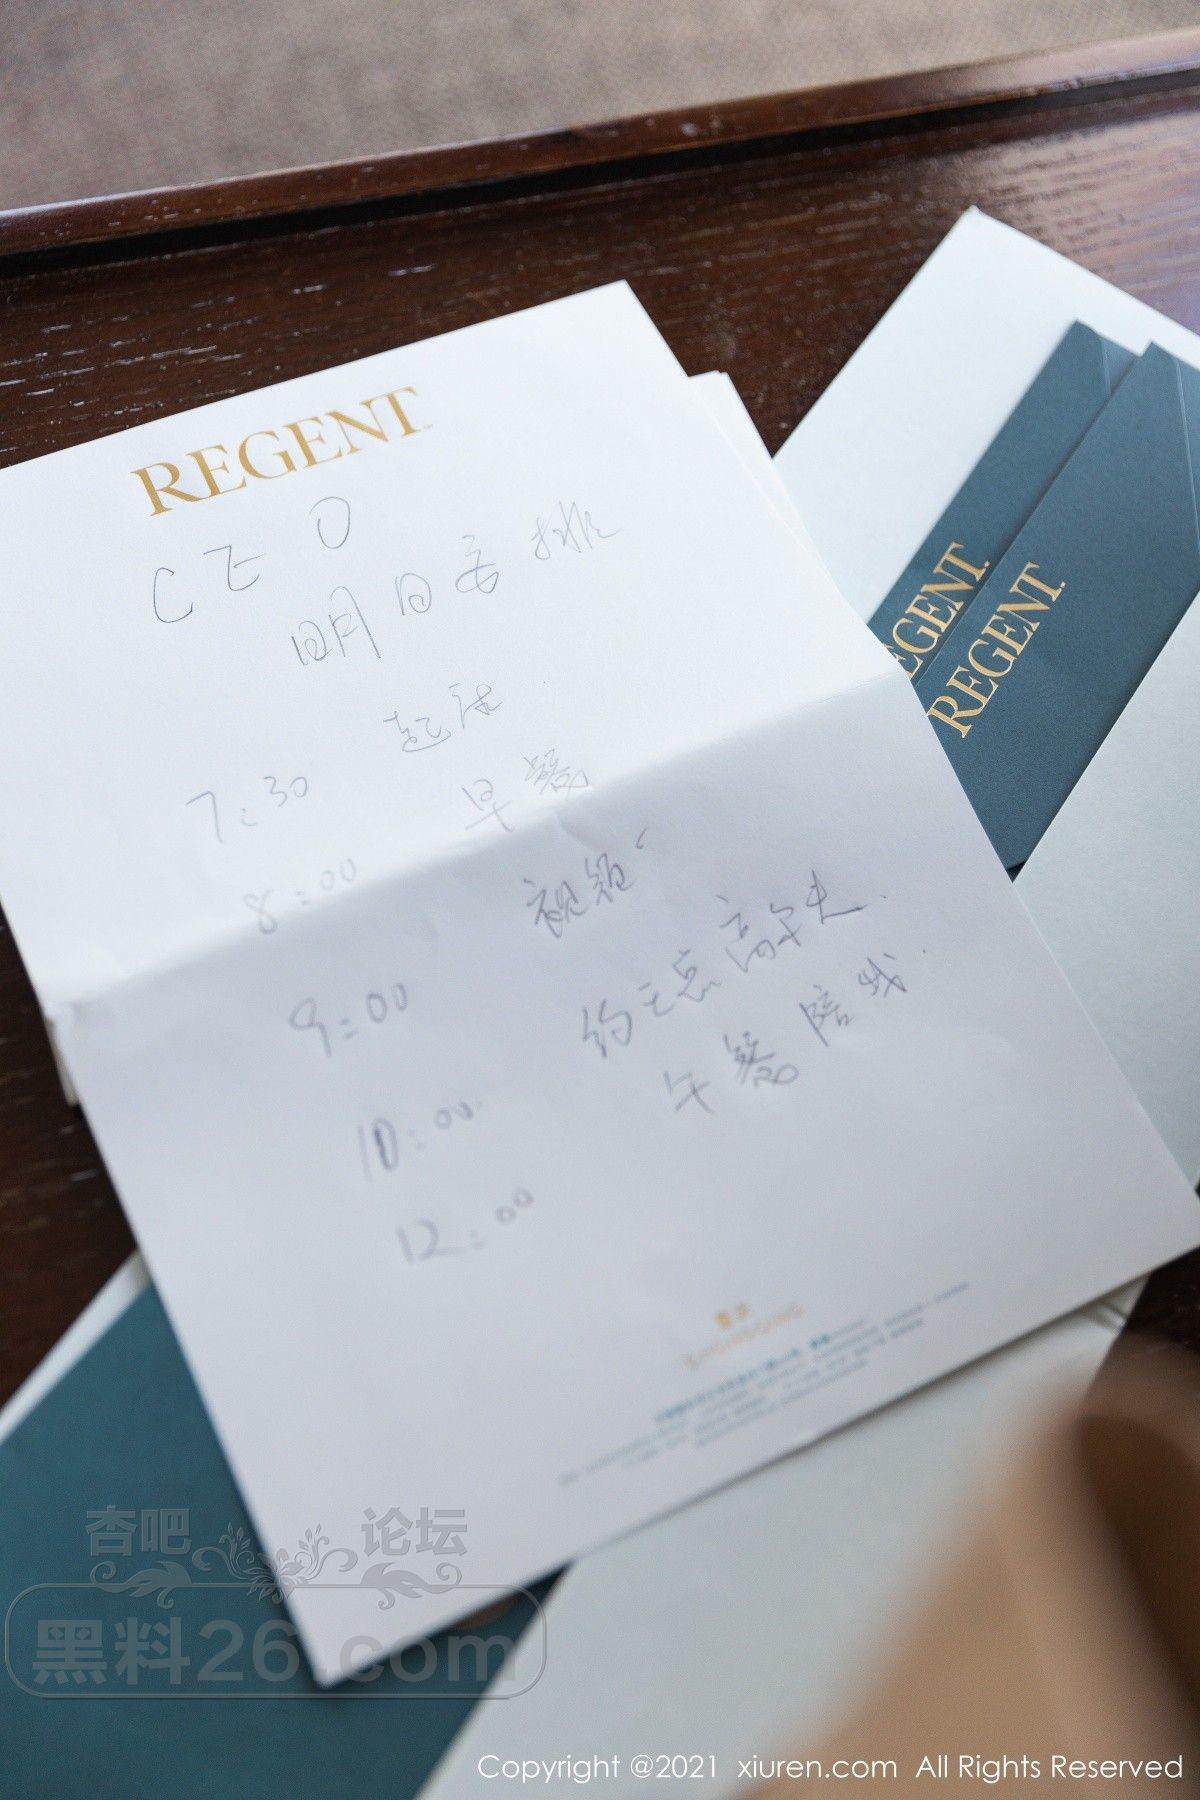 REGENT
CEO
明日安排
7:30 起床
8:00 早餐
9:00 视频
10:00 约王总高尔夫
12:00 午餐陪我
REGENT
REGENT
重庆
CHONGQING
杏吧论坛
黑料26.com
Copyright @2021 xiuren.com All Rights Reserved